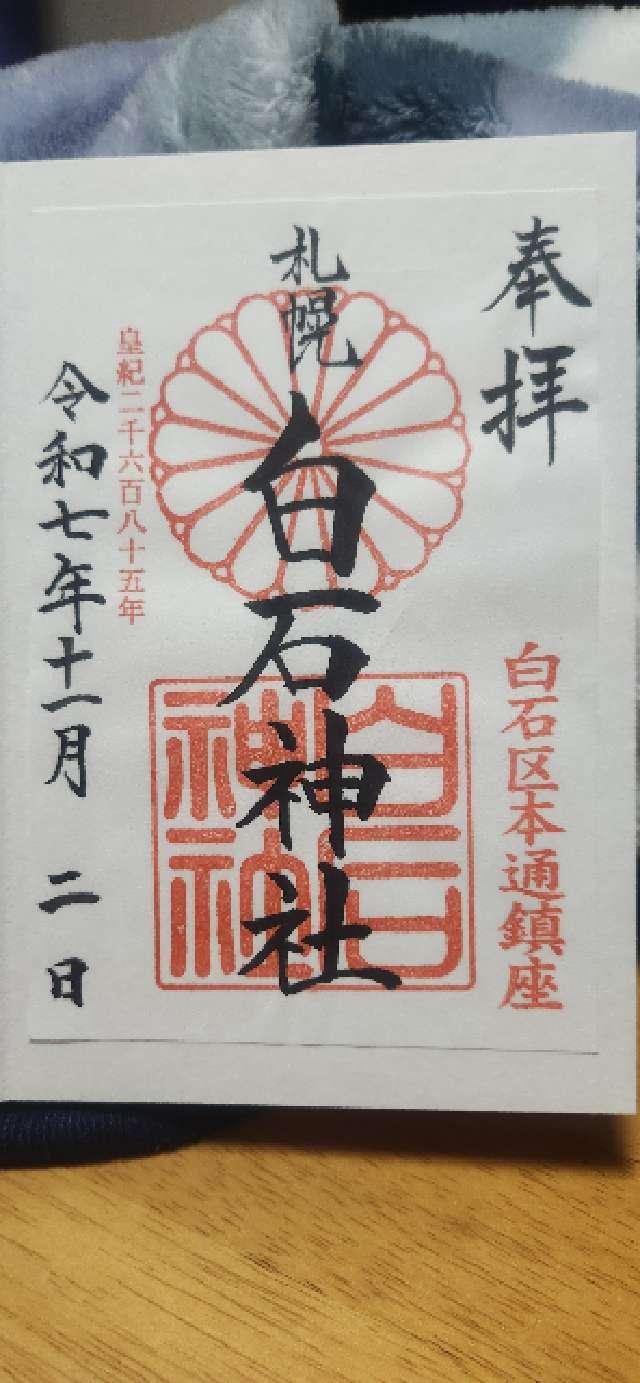 奉拝
白石区本通鎮座
札幌
白石神社
白石
神社
皇紀二千六百八十五年
令和七年十一月 二日